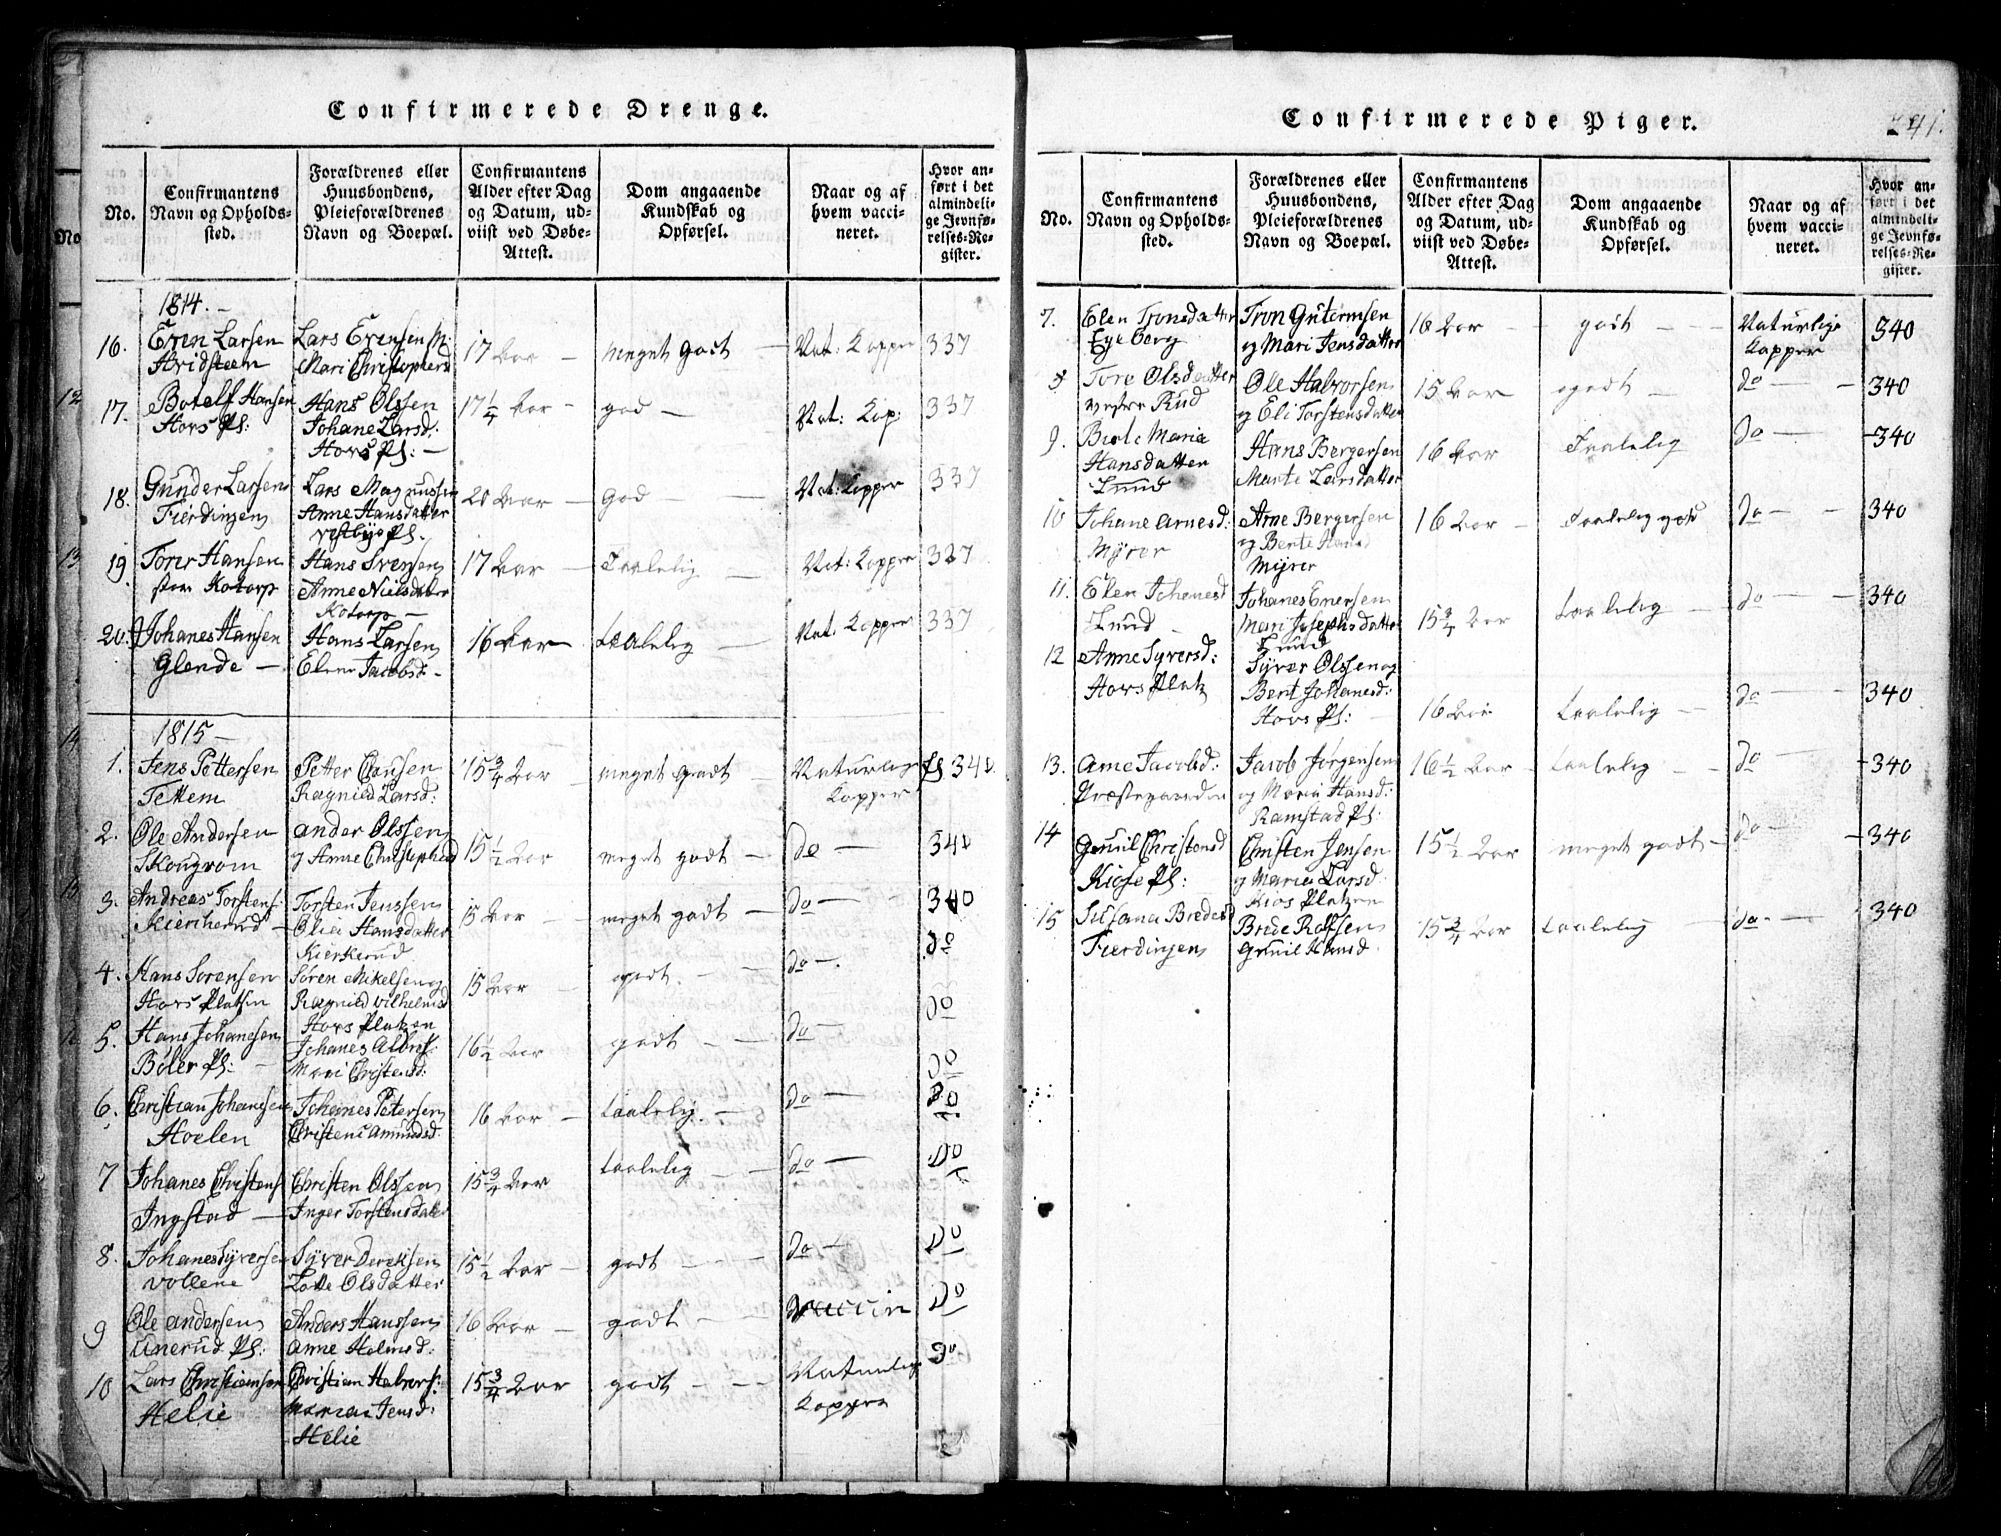 Confirmerede Drenge.
No.
Confirmantens Navn og Opholdssted.
Forældrenes eller Huusbondens, Pleieforældrenes Navn og Boepæl.
Confirmantens Alder efter Dag og Datum, udviist ved Døbe-Attest.
Dom angaaende Kundskab og Opførsel.
Naar og af hvem vaccineret.
Hvor anført i det almindelige Jevnførelses-Register.
1814. –
16. Even Larsen Lars Evensen 17 Aar – meget godt – Nat: Kopper 337
Hvidsteen Mari Christophersd
17. Botolf Hansen Hans Olssen 17 1/4 Aar – god – Nat: Kop: 337
Hors Pl: Johane Larsd:
Hors Pl: –
18. Gunder Larsen Lars Magnussen 20 Aar – God – Nat: Kopper 337
Fierdingen Anne Hansdatter
Vestbye Pl.
19 Torer Hansen Hans Svensen 17 Aar – Taalelig – Nat: Kopper 337
Kotorp Anne Nielsdatter
Kotorp –
20. Johanes Hansen Hans Larsen 16 Aar – taalelig – Nat: Kopper 337
Glende – Elene Jacobsd –
1815 –
1. Jens Pettersen Petter Clausen 15 3/4 Aar meget godt – Naturlig 340
Tettem Ragnild Larsd: Kopper
2. Ole Andersen Ander Olssen 15 1/2 Aar meget godt – do – 340
Skougrom og Anne Christophersd
3. Andreas Torstens: Torsten Jenssen 15 Aar – meget godt – do – 340
Kierkerud – Olia Hansdatter
Kierkerud
4. Hans Sørensen Søren Mikelsen og 15 Aar – godt. – do –. do
Hors Platsen Ragnild Vilhelmsd
Hors Platzen
5. Hans Johanesen Johanes Albris: 16 1/2 Aar godt – do – do
Bøler Pl: – Mari Christensd:
6. Christian Johanesen Johanes Petersen 16 Aar – taalelig. – do – do
Hoelen Christens Amundsd:
7 Johanes Christens Christen Olssen 15 3/4 Aar taalelig – do – do
Ingstad – Inger Torstensdatter
8. Johanes Syversen Syver Deriksen 15 1/2 Aar – godt – do – do
Vollene Lotte Olsdatter
9 Ole Andersen Anders Hanssen 16 Aar – godt – vaccin do
Unerud Pl: Anne Holmsd:
10 Lars Christiansen Christian Halvors: 15 3/4 Aar godt – Naturlige do
Helie Maria Jensd: Kopper
Helie
Confirmerede Piger.
241.
No.
Confirmantens Navn og Opholdssted.
Forældrenes eller Huusbondens, Pleieforældrenes Navn og Boepæl.
Confirmantens Alder efter Dag og Datum, udviist ved Døbe-Attest.
Dom angaaende Kundskab og Opførsel.
Naar og af hvem vaccineret.
Hvor anført i det almindelige Jevnførelses-Register.
7. Elen Tronsdatter Tron Gutormsen 16 Aar – godt – Naturlige 340
Egeberg og Mari Jensdatter Kopper
8 Tore Olsdatter Ole Halvorsen 15 Aar – godt – do – 340
Vestre Rud og Eli Torstensdatter
9. Birte Maria Hans Bergersen 16 Aar Taalelig do – 340
Hansdatter Marte Larsdatter
Lund
10 Johane Arnesd: Arne Bergersen 16 Aar – Taalelig godt do – 340
Myrer og Berte Hans
Myrer
11. Elen Johanesd Johanes Enersen 15 3/4 Aar taalelig – do – 340
Lund – Mari Josephsdatter
Lund
12 Anne Syversd: Syver Olssen og 16 Aar taalelig – do – 340
Hors Platz Berit Johanesd:
Hors Pl:
13. Anne Jacobsd: Jacob Jørgensen 16 1/2 Aar – taalelig – do – 340
Præstegaarden og Maria Hansd:
Ramstad Pl:
14 Gunil Christensd Christen Jensen 15 1/2 Aar meget godt – do – 340
Kiose Pl: og Maria Larsd
Kios Platzen
15 Susana Bredesd Brede Rolfsen 15 3/4 Aar taalelig – do – 340
Fierdingen Gunil Hansd.